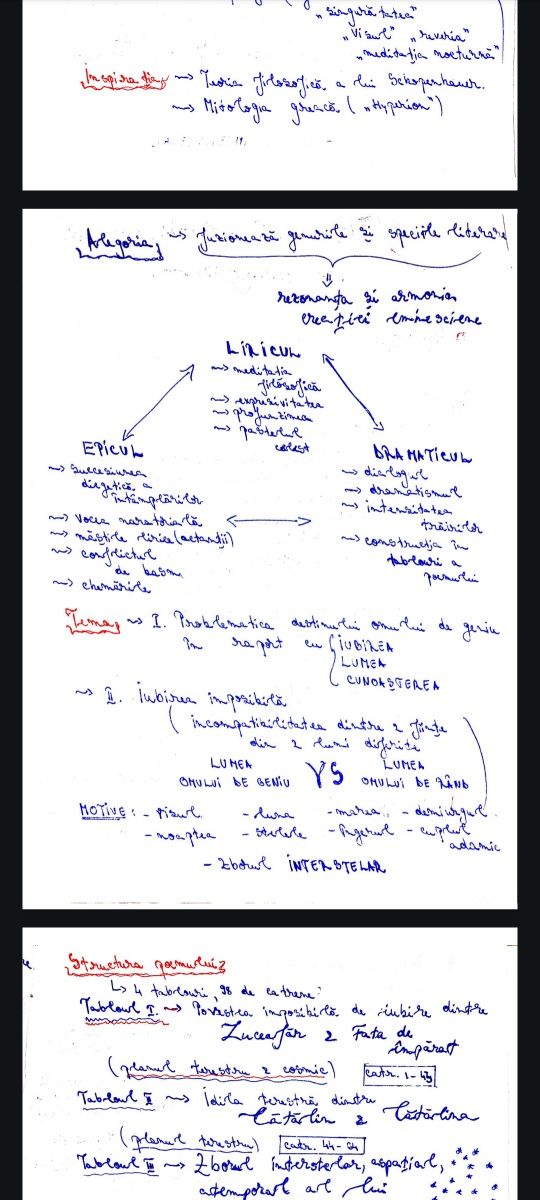 „singurătatea”
„visul” „reveria”
„meditația nocturnă”
Inspirația → Teoria filosofică a lui Schopenhauer.
→ Mitologia greacă („Hyperion”)
Alegoria → fuzionează genurile și speciile literare
rezonanța și armonia
creației eminesciene
LIRICUL
→ meditația
filosofică
→ expresivitatea
→ profunzimea
→ pastelul
celest
EPICUL
→ succesiunea
diegetică a
întâmplărilor
→ vocea naratorială
→ măștile lirice (actanții)
→ conflictul
de basm
→ chemările
DRAMATICUL
→ dialogul
→ dramatismul
→ intensitatea
trăirilor
→ construcția în
tablouri a
poemului
Tema → I. Problematica destinului omului de geniu
în raport cu IUBIREA
LUMEA
CUNOAȘTEREA
→ II. Iubirea imposibilă
(incompatibilitatea dintre 2 ființe
din 2 lumi diferite)
LUMEA OMULUI DE GENIU VS LUMEA OMULUI DE RÂND
MOTIVE: - visul - luna - marea - demiurgul
- noaptea - stelele - îngerul - cuplul
adamic
- zborul INTERSTELAR
Structura poemului
↳ 4 tablouri, 98 de catrene
Tabloul I → Povestea imposibilă de iubire dintre
Luceafăr & Fata de
împărat
(planul terestru & cosmic) catr. 1-43
Tabloul II → Idila terestră dintre
Cătălin & Cătălina
(planul terestru) catr. 44-64
Tabloul III → Zborul interstelar, aspațial,
atemporal al lui